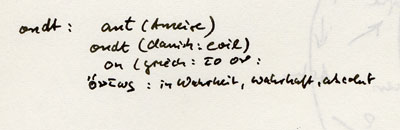 ondt : ant (Ameise)
ondt (danish: evil)
on (griech: το ον:
ὄντως : in Wahrheit, wahrhaft, absolut